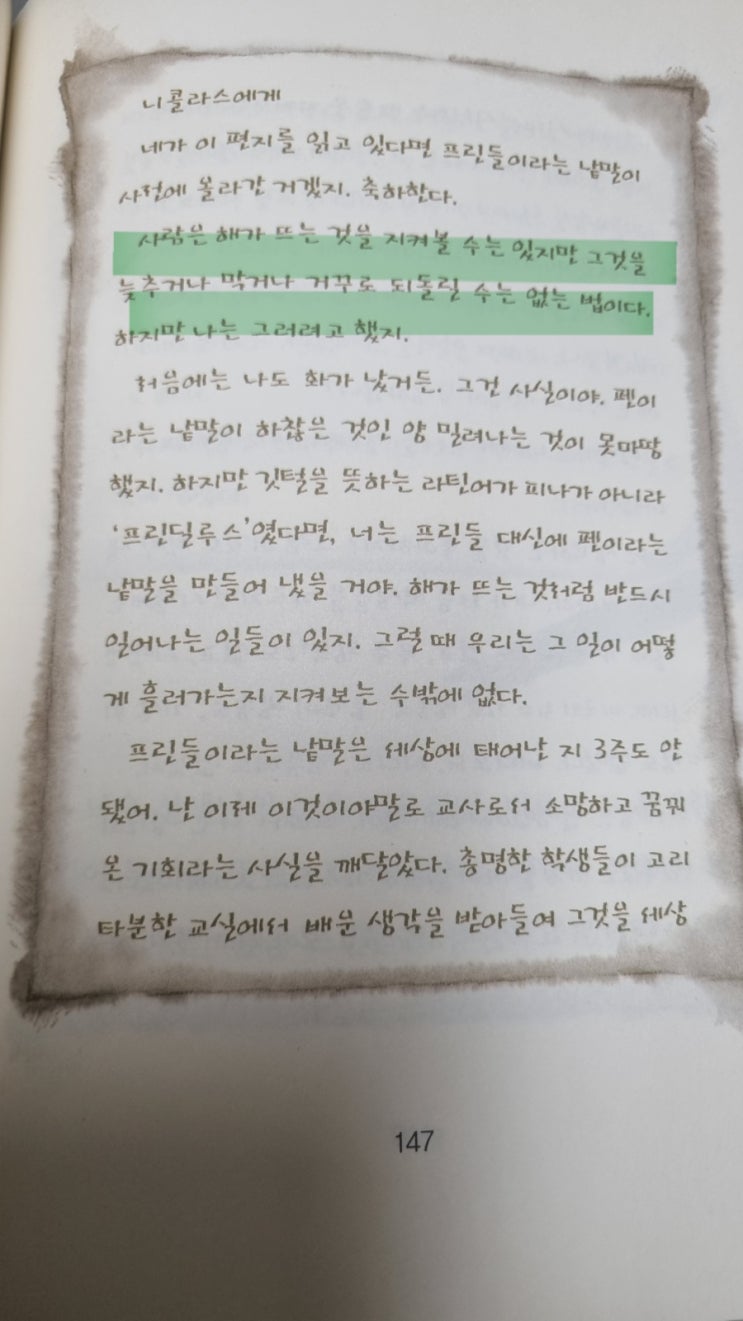 니콜라스에게
네가 이 편지를 읽고 있다면 프린들이라는 낱말이
사전에 올라간 거겠지. 축하한다.
사람은 해가 뜨는 것을 지켜볼 수는 있지만 그것을
늦추거나 막거나 거꾸로 되돌릴 수는 없는 법이다.
하지만 나는 그러려고 했지.
처음에는 나도 화가 났거든. 그건 사실이야. 펜이
라는 낱말이 하찮은 것인 양 밀려나는 것이 못마땅
했지. 하지만 깃털을 뜻하는 라틴어가 피나가 아니라
‘프린딜루스’였다면, 너는 프린들 대신에 펜이라는
낱말을 만들어 냈을 거야. 해가 뜨는 것처럼 반드시
일어나는 일들이 있지. 그럴 때 우리는 그 일이 어떻
게 흘러가는지 지켜보는 수밖에 없다.
프린들이라는 낱말은 세상에 태어난 지 3주도 안
됐어. 난 이제 이것이야말로 교사로서 소망하고 꿈꿔
온 기회라는 사실을 깨달았다. 총명한 학생들이 고리
타분한 교실에서 배운 생각을 받아들여 그것을 세상
147